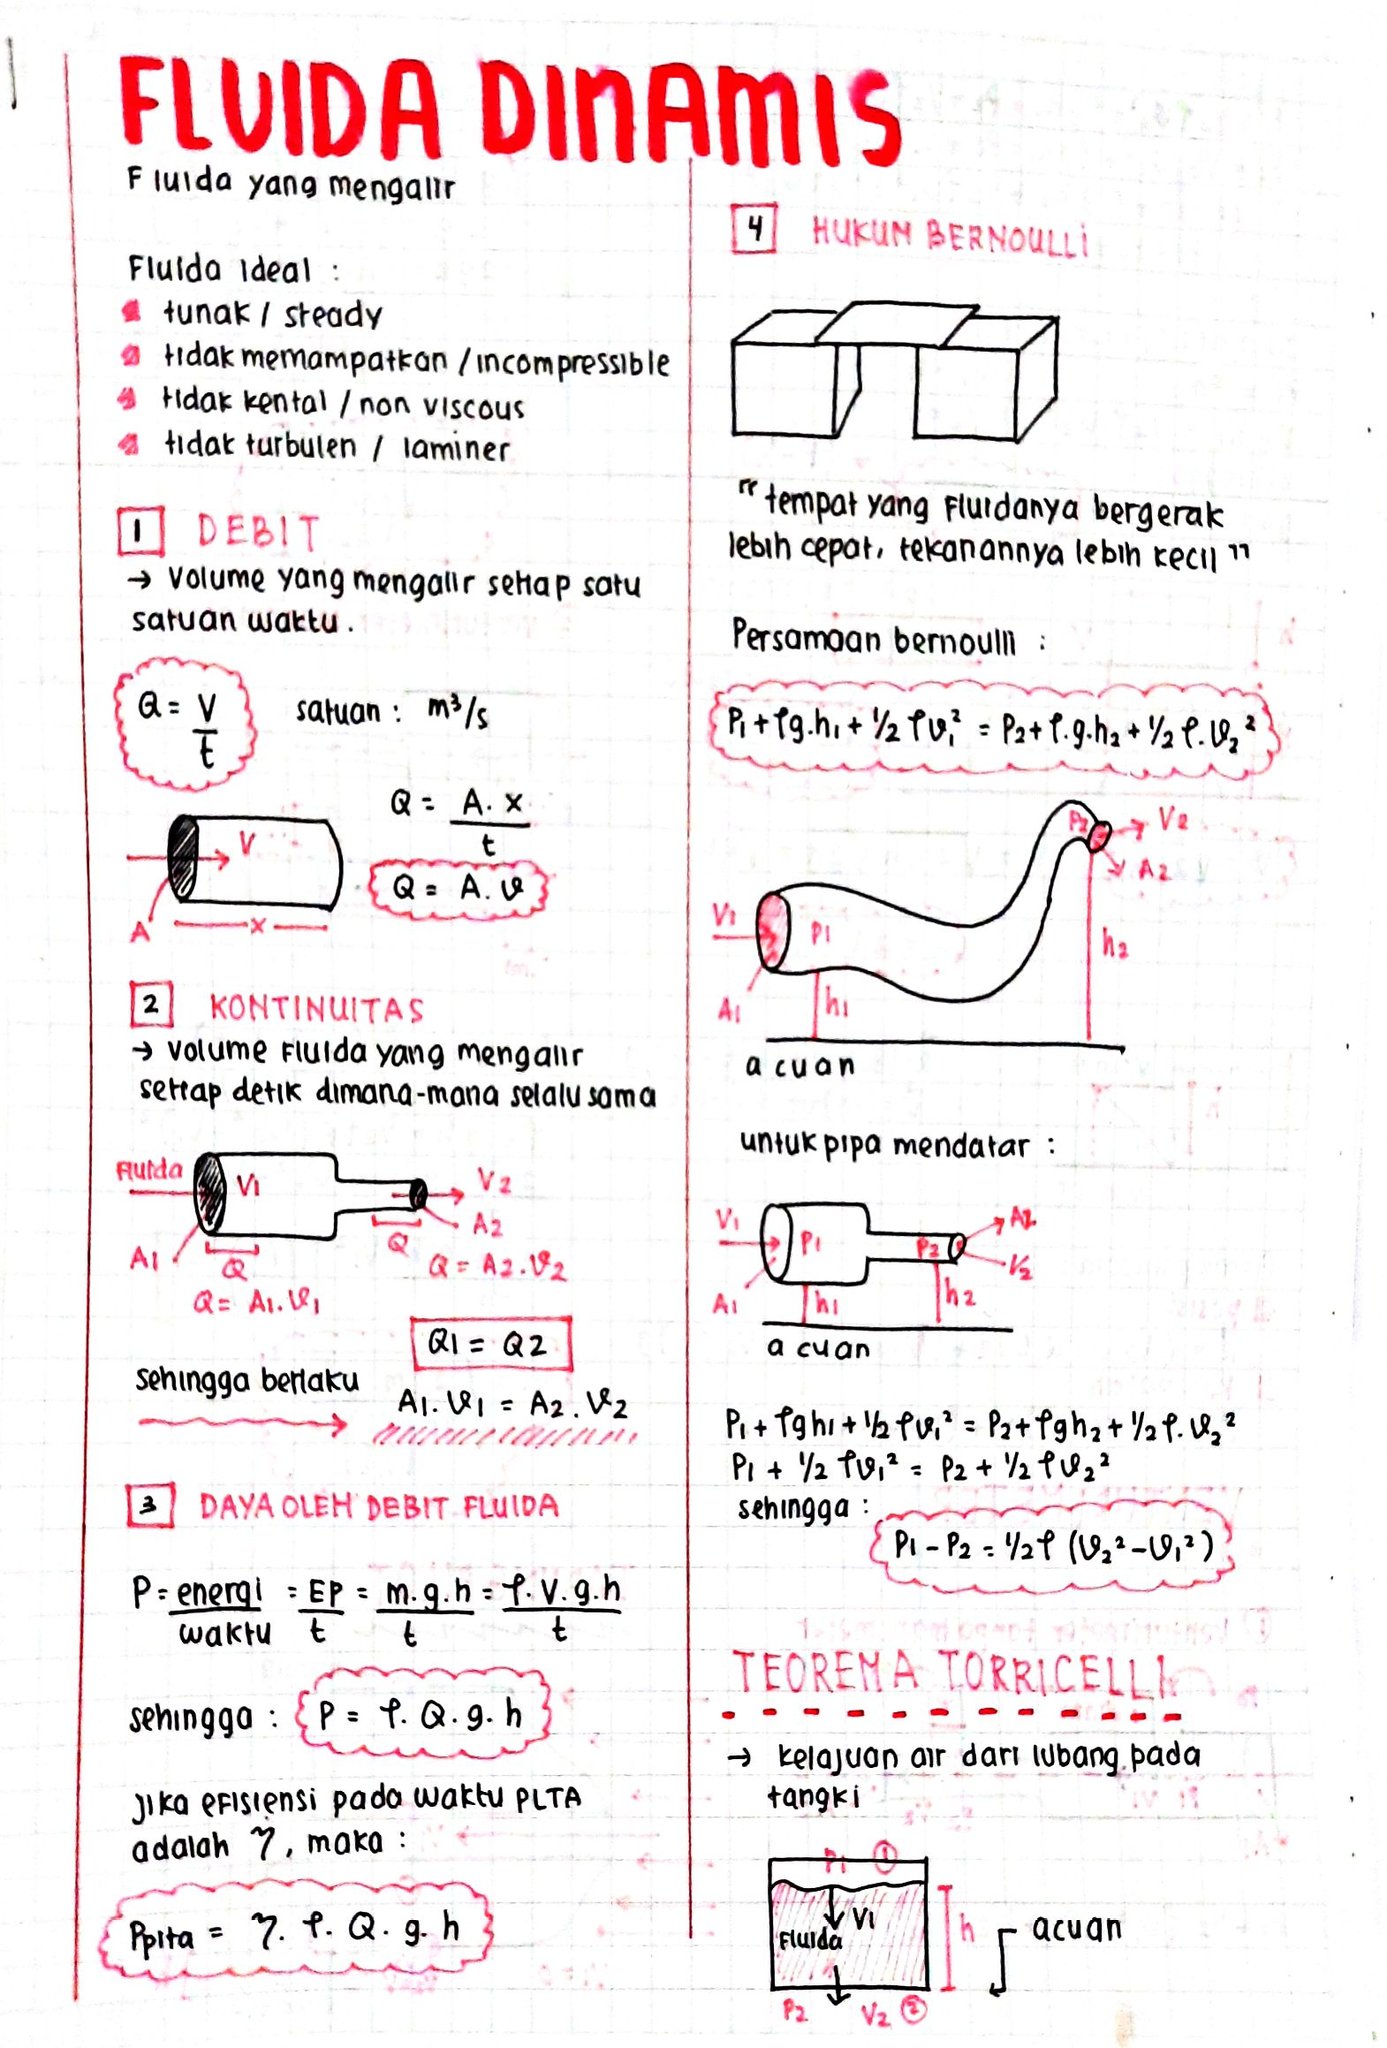 FLUIDA DINAMIS
Fluida yang mengalir
Fluida ideal :
tunak / steady
tidak memampatkan / incompressible
tidak kental / non viscous
tidak turbulen / laminer
1 DEBIT
→ Volume yang mengalir setiap satu
satuan waktu.
Q = V/t satuan : m³/s
Q = A. x / t
V
Q = A. v
A x
2 KONTINUITAS
→ Volume Fluida yang mengalir
setiap detik dimana-mana selalu sama
Fluida V1 V2
A1 Q Q A2
Q = A2.v2
Q = A1.v1
Q1 = Q2
sehingga berlaku
A1.v1 = A2.v2
3 DAYA OLEH DEBIT FLUIDA
P = energi/waktu = EP/t = m.g.h/t = ρ.V.g.h/t
sehingga : P = ρ. Q. g. h
jika efisiensi pada waktu PLTA
adalah η, maka :
Pplta = η. ρ. Q. g. h
4 HUKUM BERNOULLI
" tempat yang Fluidanya bergerak
lebih cepat, tekanannya lebih kecil "
Persamaan bernoulli :
P1 + ρg.h1 + 1/2 ρv1² = P2 + ρ.g.h2 + 1/2 ρ.v2²
P2 V2
A2
V1 P1
h2
A1 h1
acuan
untuk pipa mendatar :
V1 P1 P2 A2
V2
A1 h1 h2
acuan
P1 + ρgh1 + 1/2 ρv1² = P2 + ρgh2 + 1/2 ρ.v2²
P1 + 1/2 ρv1² = P2 + 1/2 ρv2²
sehingga :
P1 - P2 = 1/2 ρ (v2² - v1²)
TEOREMA TORRICELLI
→ kelajuan air dari lubang pada
tangki
P1 1
V1
Fluida h acuan
P2 V2 2